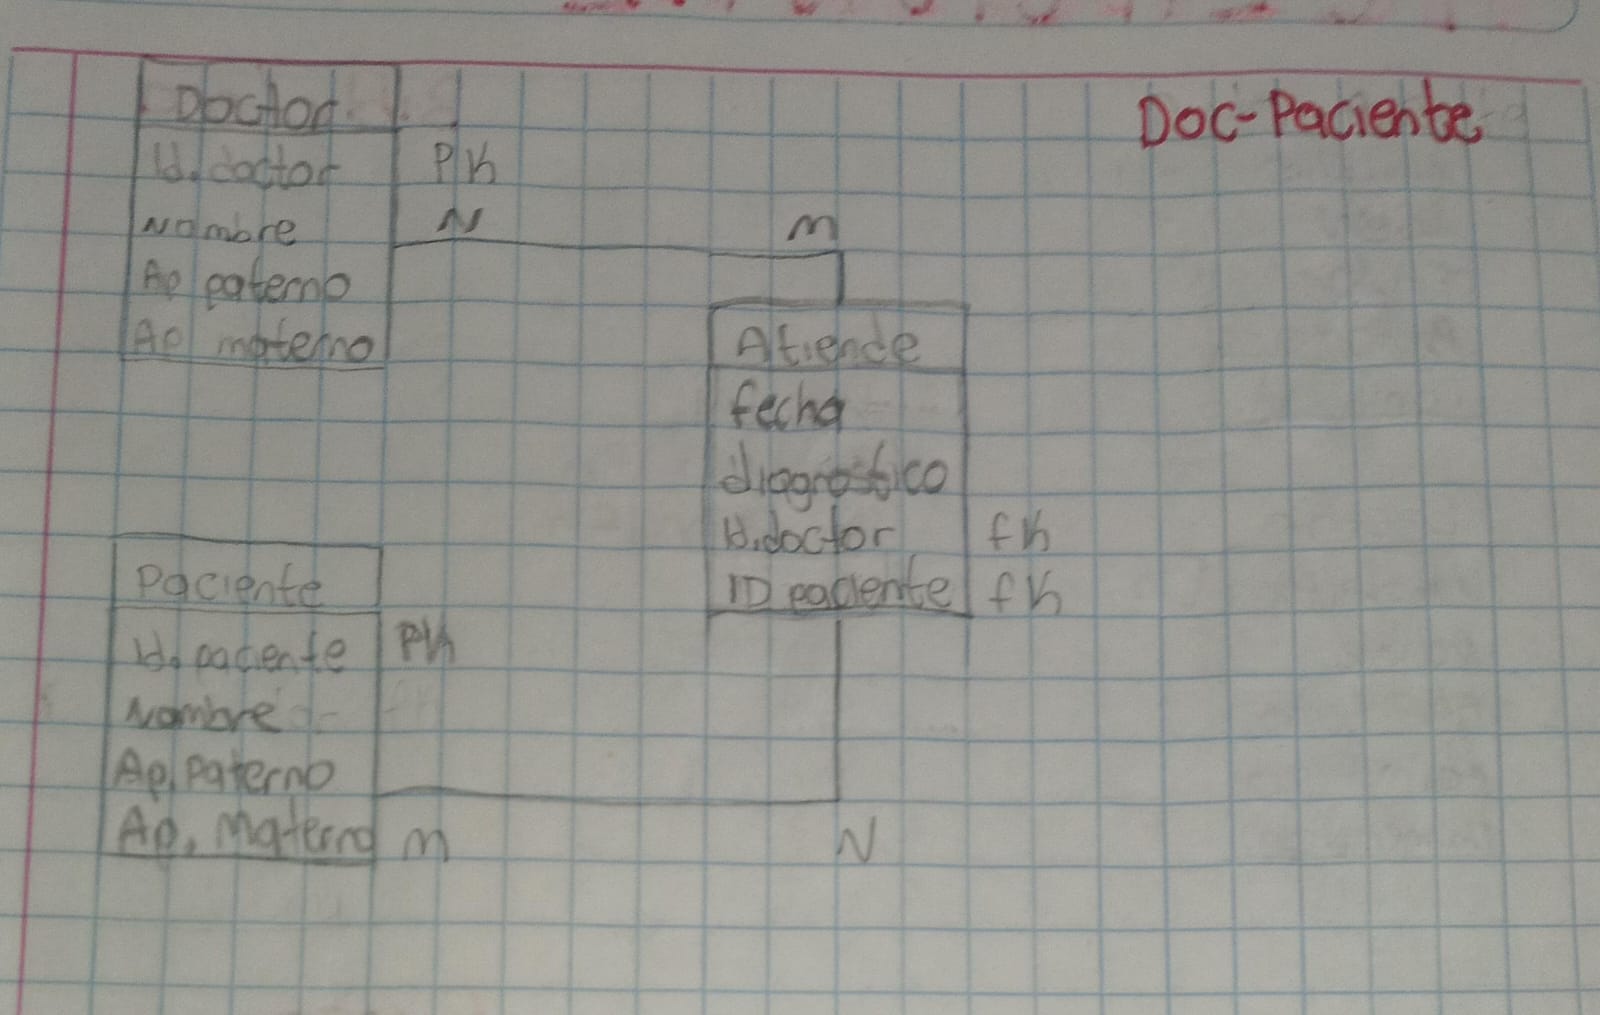 Doc-Paciente
Doctor
Id. doctor PK
Nombre N M
Ap paterno
Ap materno
Atiende
fecha
diagnostico
Id. doctor fK
ID paciente fK
Paciente
Id. paciente PK
Nombre
Ap. Paterno
Ap. Materno m N